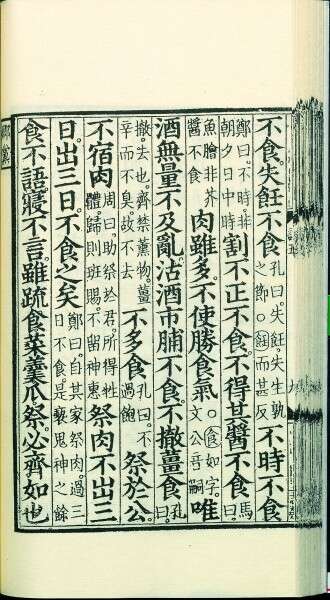 不食。失飪不食。孔曰。失飪。失生孰之節。○飪而甚反不時不食。
鄭曰。不時。非朝夕日中時割不正不食。不得其醬不食。馬曰。
魚膾非芥醬不食肉雖多。不使勝食氣。○食如字。文公音嗣唯
酒無量。不及亂。沽酒市脯不食。不撤薑食。孔曰。
撤。去也。齊禁薰物。薑辛而不臭。故不去不多食。孔曰。不過飽祭於公。
不宿肉。周曰。助祭於君。所得牲體。歸則班賜。不留神惠祭肉不出三
日。出三日。不食之矣鄭曰。自其家祭肉。過三日不食。是褻鬼神之餘
食不語。寢不言。雖疏食菜羹瓜祭。必齊如也